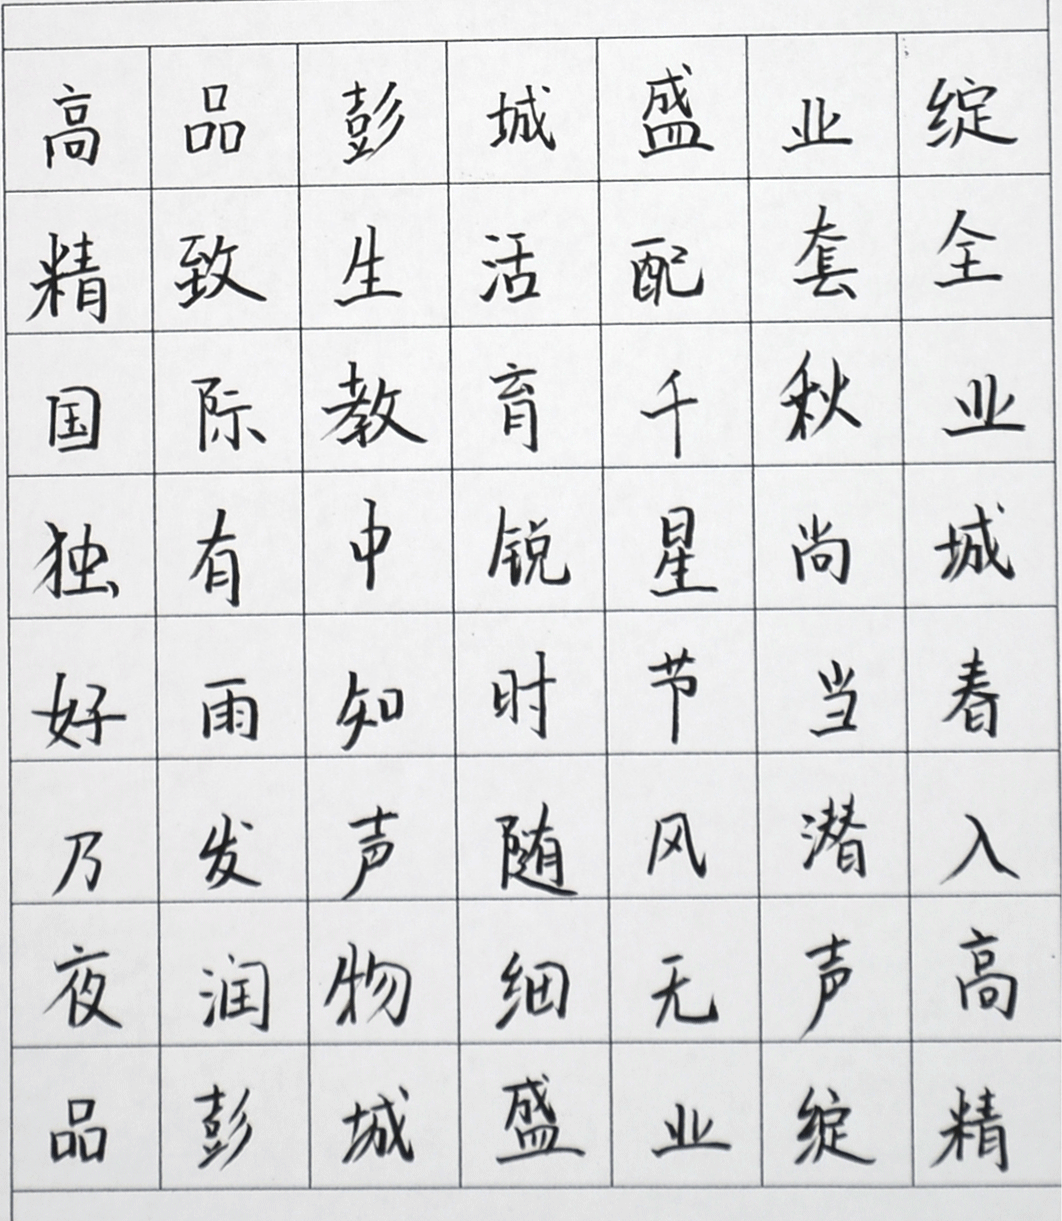 高品彭城盛业绽
精致生活配套全
国际教育千秋业
独有中锐星尚城
好雨知时节当春
乃发声随风潜入
夜润物细无声高
品彭城盛业绽精